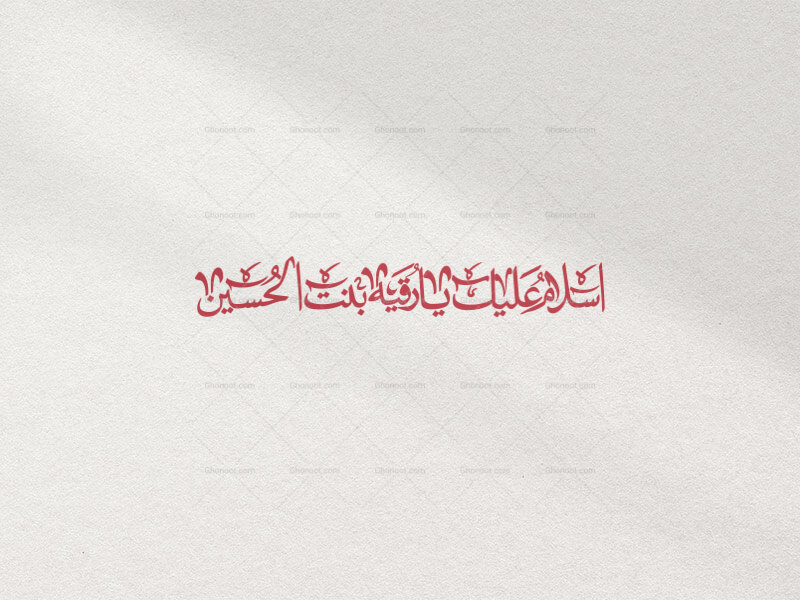 اسلام عليك يا رقيه بنت الحسين
Ghonoot.com Ghonoot.com Ghonoot.com Ghonoot.com Ghonoot.com
Ghonoot.com Ghonoot.com Ghonoot.com Ghonoot.com Ghonoot.com
Ghonoot.com Ghonoot.com Ghonoot.com Ghonoot.com Ghonoot.com
Ghonoot.com Ghonoot.com Ghonoot.com Ghonoot.com Ghonoot.com